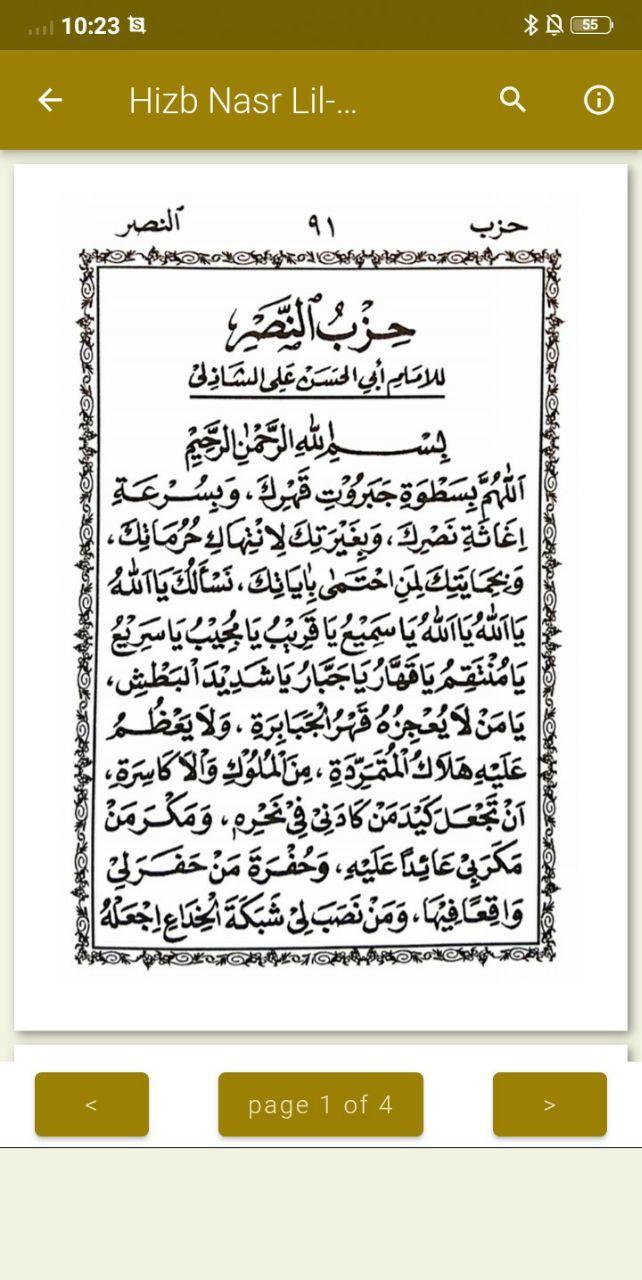 10:23
55
Hizb Nasr Lil-...
حزب ٩١ النصر
حِزْبُ النَّصْرِ
للامَامِ أبي الحَسَنْ عَلي الشَاذِلِيْ
بِسْمِ اللهِ الرَّحْمٰنِ الرَّحِيْمِ
اَللّٰهُمَّ بِسَطْوَةِ جَبَرُوْتِ قَهْرِكَ، وَبِسُرْعَةِ
اِغَاثَةِ نَصْرِكَ، وَبِغَيْرَتِكَ لِانْتِهَاكِ حُرُمَاتِكَ،
وَبِحِمَايَتِكَ لِمَنِ احْتَمٰى بِاٰيَاتِكَ، نَسْأَلُكَ يَااَللهُ
يَااَللهُ يَااَللهُ يَا سَمِيْعُ يَا قَرِيْبُ يَا مُجِيْبُ يَا سَرِيْعُ
يَا مُنْتَقِمُ يَا قَهَّارُ يَا جَبَّارُ يَا شَدِيْدَ الْبَطْشِ،
يَا مَنْ لَا يُعْجِزُهُ قَهْرُ الْجَبَابِرَةِ، وَلَا يَعْظُمُ
عَلَيْهِ هَلَاكُ الْمُتَمَرِّدَةِ، مِنَ الْمُلُوْكِ وَالْاَكَاسِرَةِ،
اَنْ تَجْعَلَ كَيْدَ مَنْ كَادَنِيْ فِيْ نَحْرِهِ، وَمَكْرَ مَنْ
مَكَرَ بِيْ عَائِدًا عَلَيْهِ، وَحُفْرَةَ مَنْ حَفَرَ لِيْ
وَاقِعًا فِيْهَا، وَمَنْ نَصَبَ لِيْ شَبَكَةَ الْخِدَاعِ اِجْعَلْهُ
< page 1 of 4 >